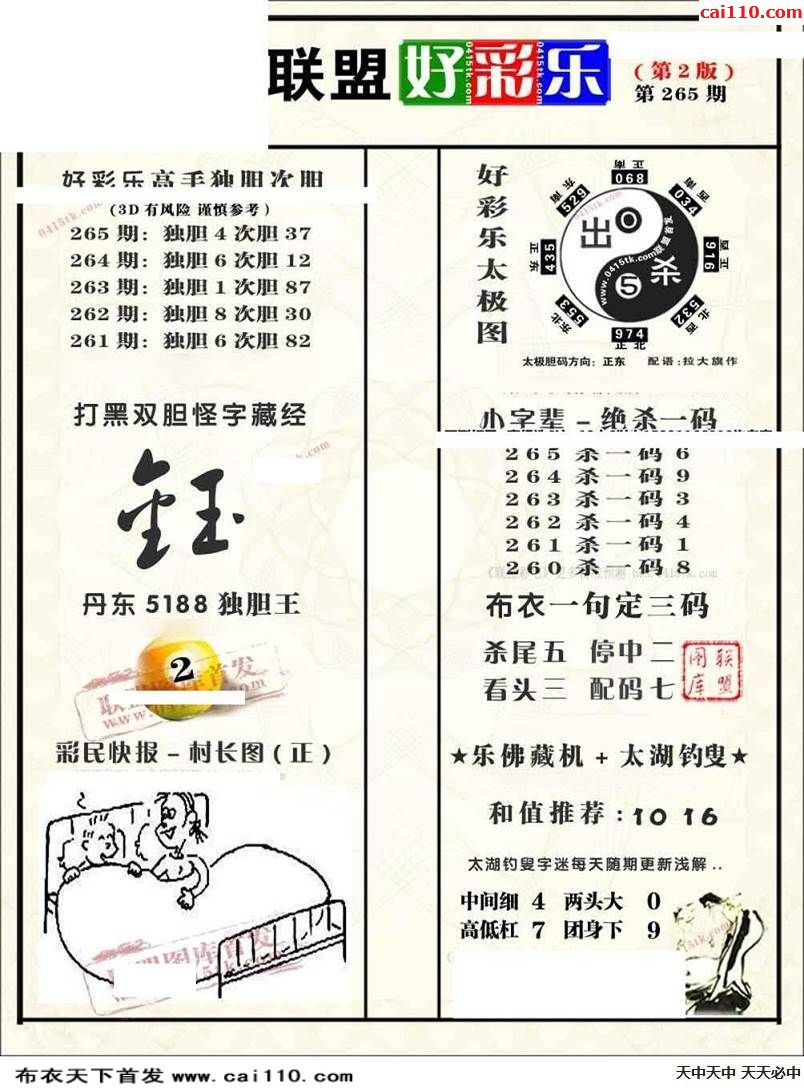 cai110.com
联盟 好彩乐
0415tk.com 0415tk.com 0415tk.com
(第2版)
第265期
好彩乐高手独胆次胆
(3D有风险 谨慎参考)
0415tk.com
265期: 独胆4次胆37
264期: 独胆6次胆12
263期: 独胆1次胆87
262期: 独胆8次胆30
261期: 独胆6次胆82
打黑双胆怪字藏经
金玉
丹东5188独胆王
2
联盟图库首发
彩民快报-村长图(正)
联盟图库首发
好彩乐太极图
正南
068
东南
529
西南
034
正东
435
正西
916
东北
553
西北
532
974
正北
出 0
5 杀
www.0415tk.com联盟首发
太极胆码方向: 正东 配语:拉大旗作
小字辈-绝杀一码
265 杀一码 6
264 杀一码 9
263 杀一码 3
262 杀一码 4
261 杀一码 1
260 杀一码 8
布衣一句定三码
杀尾五 停中二
看头三 配码七
联盟图库
★乐佛藏机+太湖钓叟★
和值推荐:10 16
太湖钓叟字迷每天随期更新浅解..
中间细 4 两头大 0
高低杠 7 团身下 9
布衣天下首发 www.cai110.com
天中天中 天天必中